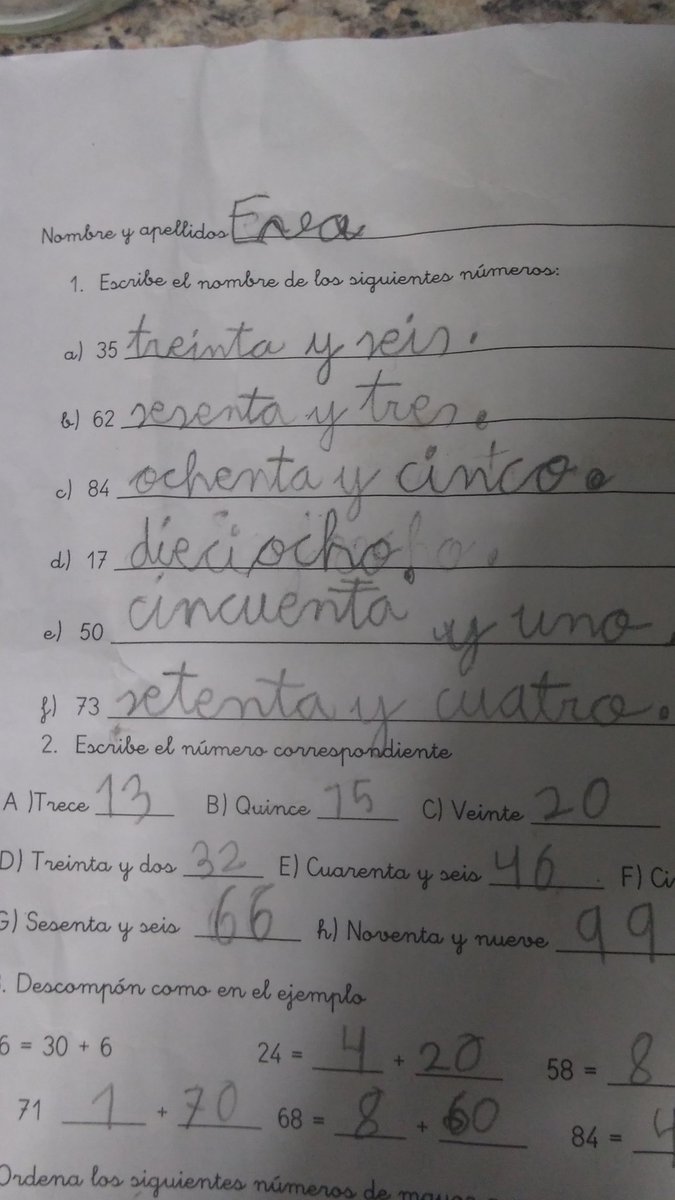 Nombre y apellidos Enea
1. Escribe el nombre de los siguientes números:
a) 35 treinta y seis.
b) 62 sesenta y tres.
c) 84 ochenta y cinco.
d) 17 dieciocho.
e) 50 cincuenta y uno.
f) 73 setenta y cuatro.
2. Escribe el número correspondiente
A )Trece 13 B) Quince 15 C) Veinte 20
D) Treinta y dos 32 E) Cuarenta y seis 46 F) Ci
G) Sesenta y seis 66 h) Noventa y nueve 99
. Descompón como en el ejemplo
6 = 30 + 6 24 = 4 + 20 58 = 8
71 1 + 70 68 = 8 + 60 84 = 4
Ordena los siguientes números de mayor